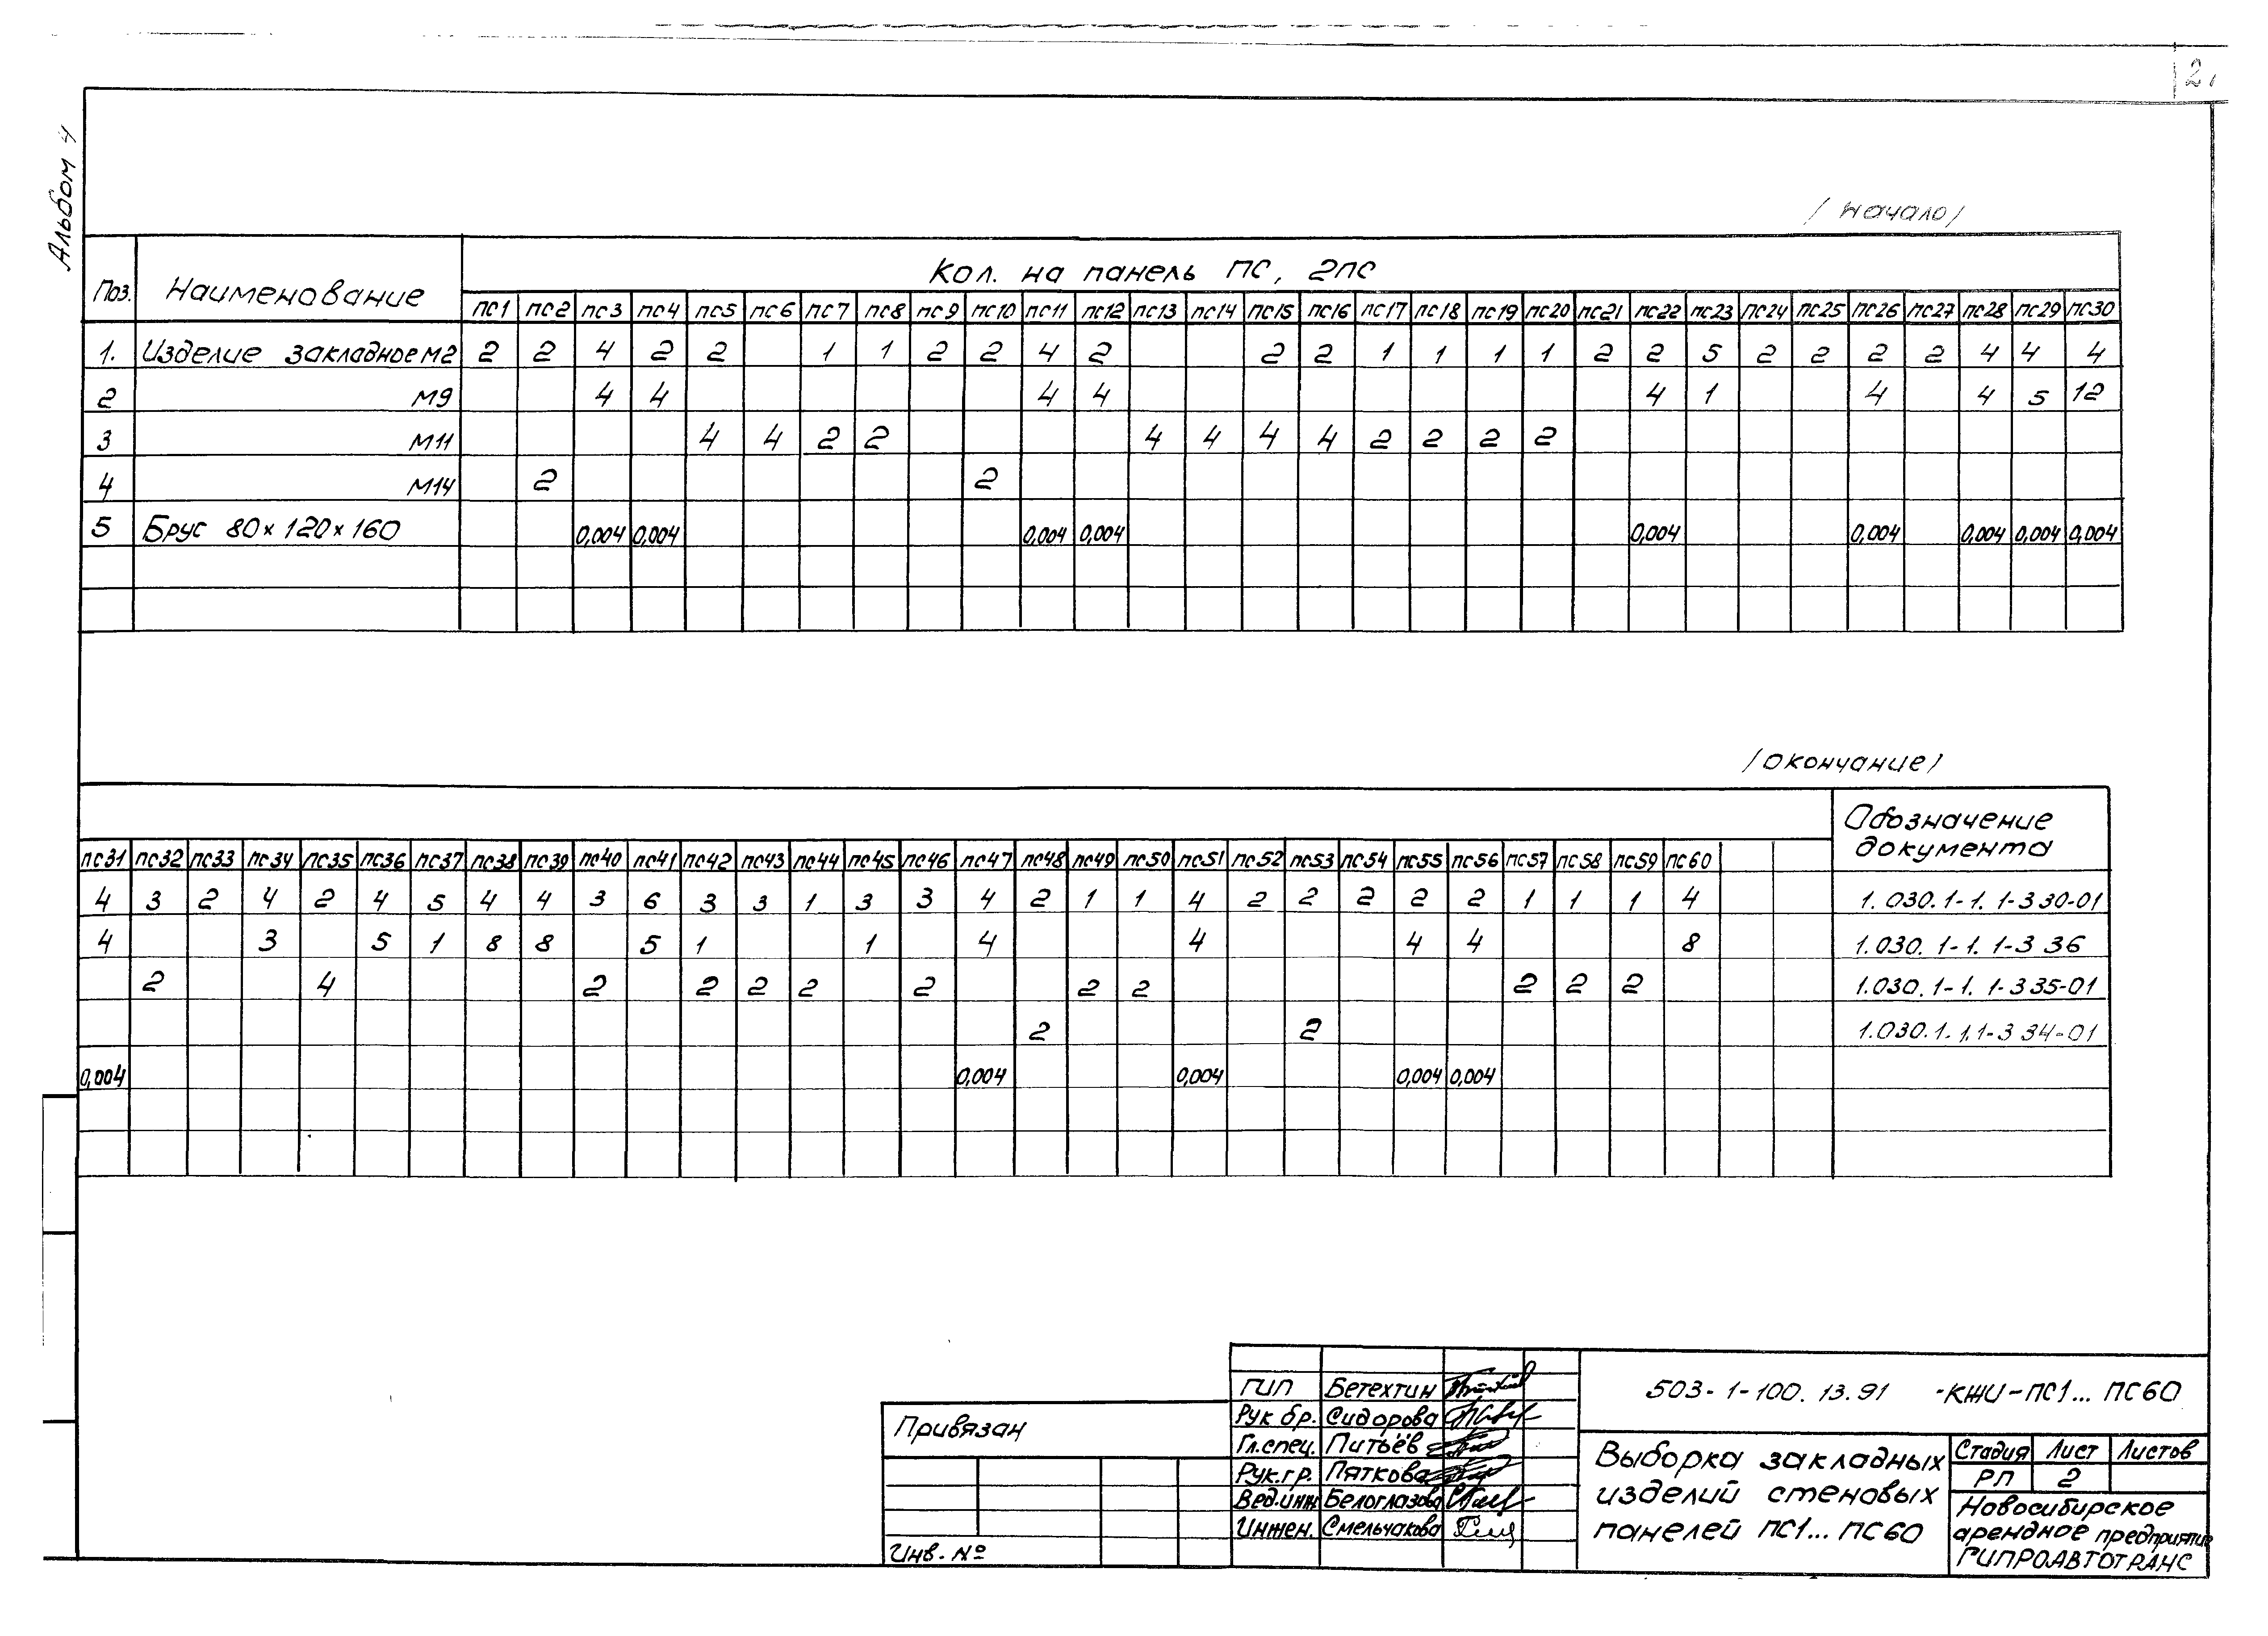 2.
Альбом 4
/начало/
Поз. Наименование Кол. на панель ПС, 2ПС
ПС1 ПС2 ПС3 ПС4 ПС5 ПС6 ПС7 ПС8 ПС9 ПС10 ПС11 ПС12 ПС13 ПС14 ПС15 ПС16 ПС17 ПС18 ПС19 ПС20 ПС21 ПС22 ПС23 ПС24 ПС25 ПС26 ПС27 ПС28 ПС29 ПС30
1. Изделие закладное М2 2 2 4 2 2 1 1 2 2 4 2 2 2 1 1 1 1 2 2 5 2 2 2 2 4 4 4
2 М9 4 4 4 4 4 1 4 4 5 12
3 М11 4 4 2 2 4 4 4 4 2 2 2 2
4 М14 2 2
5 Брус 80×120×160 0,004 0,004 0,004 0,004 0,004 0,004 0,004 0,004 0,004
/окончание/
Обозначение документа
ПС31 ПС32 ПС33 ПС34 ПС35 ПС36 ПС37 ПС38 ПС39 ПС40 ПС41 ПС42 ПС43 ПС44 ПС45 ПС46 ПС47 ПС48 ПС49 ПС50 ПС51 ПС52 ПС53 ПС54 ПС55 ПС56 ПС57 ПС58 ПС59 ПС60
4 3 2 4 2 4 5 4 4 3 6 3 3 1 3 3 4 2 1 1 4 2 2 2 2 2 1 1 1 4 1.030.1-1.1-3 30-01
4 3 5 1 8 8 5 1 1 4 4 4 4 8 1.030.1-1.1-3 36
2 4 2 2 2 2 2 2 2 2 2 2 1.030.1-1.1-3 35-01
2 2 1.030.1-1.1-3 34-01
0,004 0,004 0,004 0,004 0,004
ГИП Бетехтин
Рук бр. Сидорова
Гл.спец. Питьёв
Рук.гр. Пяткова
Вед.инж Белоглазова
Инжен. Смельчакова
Привязан
Инв. №
503-1-100.13.91 -КЖИ-ПС1...ПС60
Выборка закладных
изделий стеновых
панелей ПС1...ПС60
Стадия Лист Листов
РП 2
Новосибирское
арендное предприятие
ГИПРОАВТОТРАНС